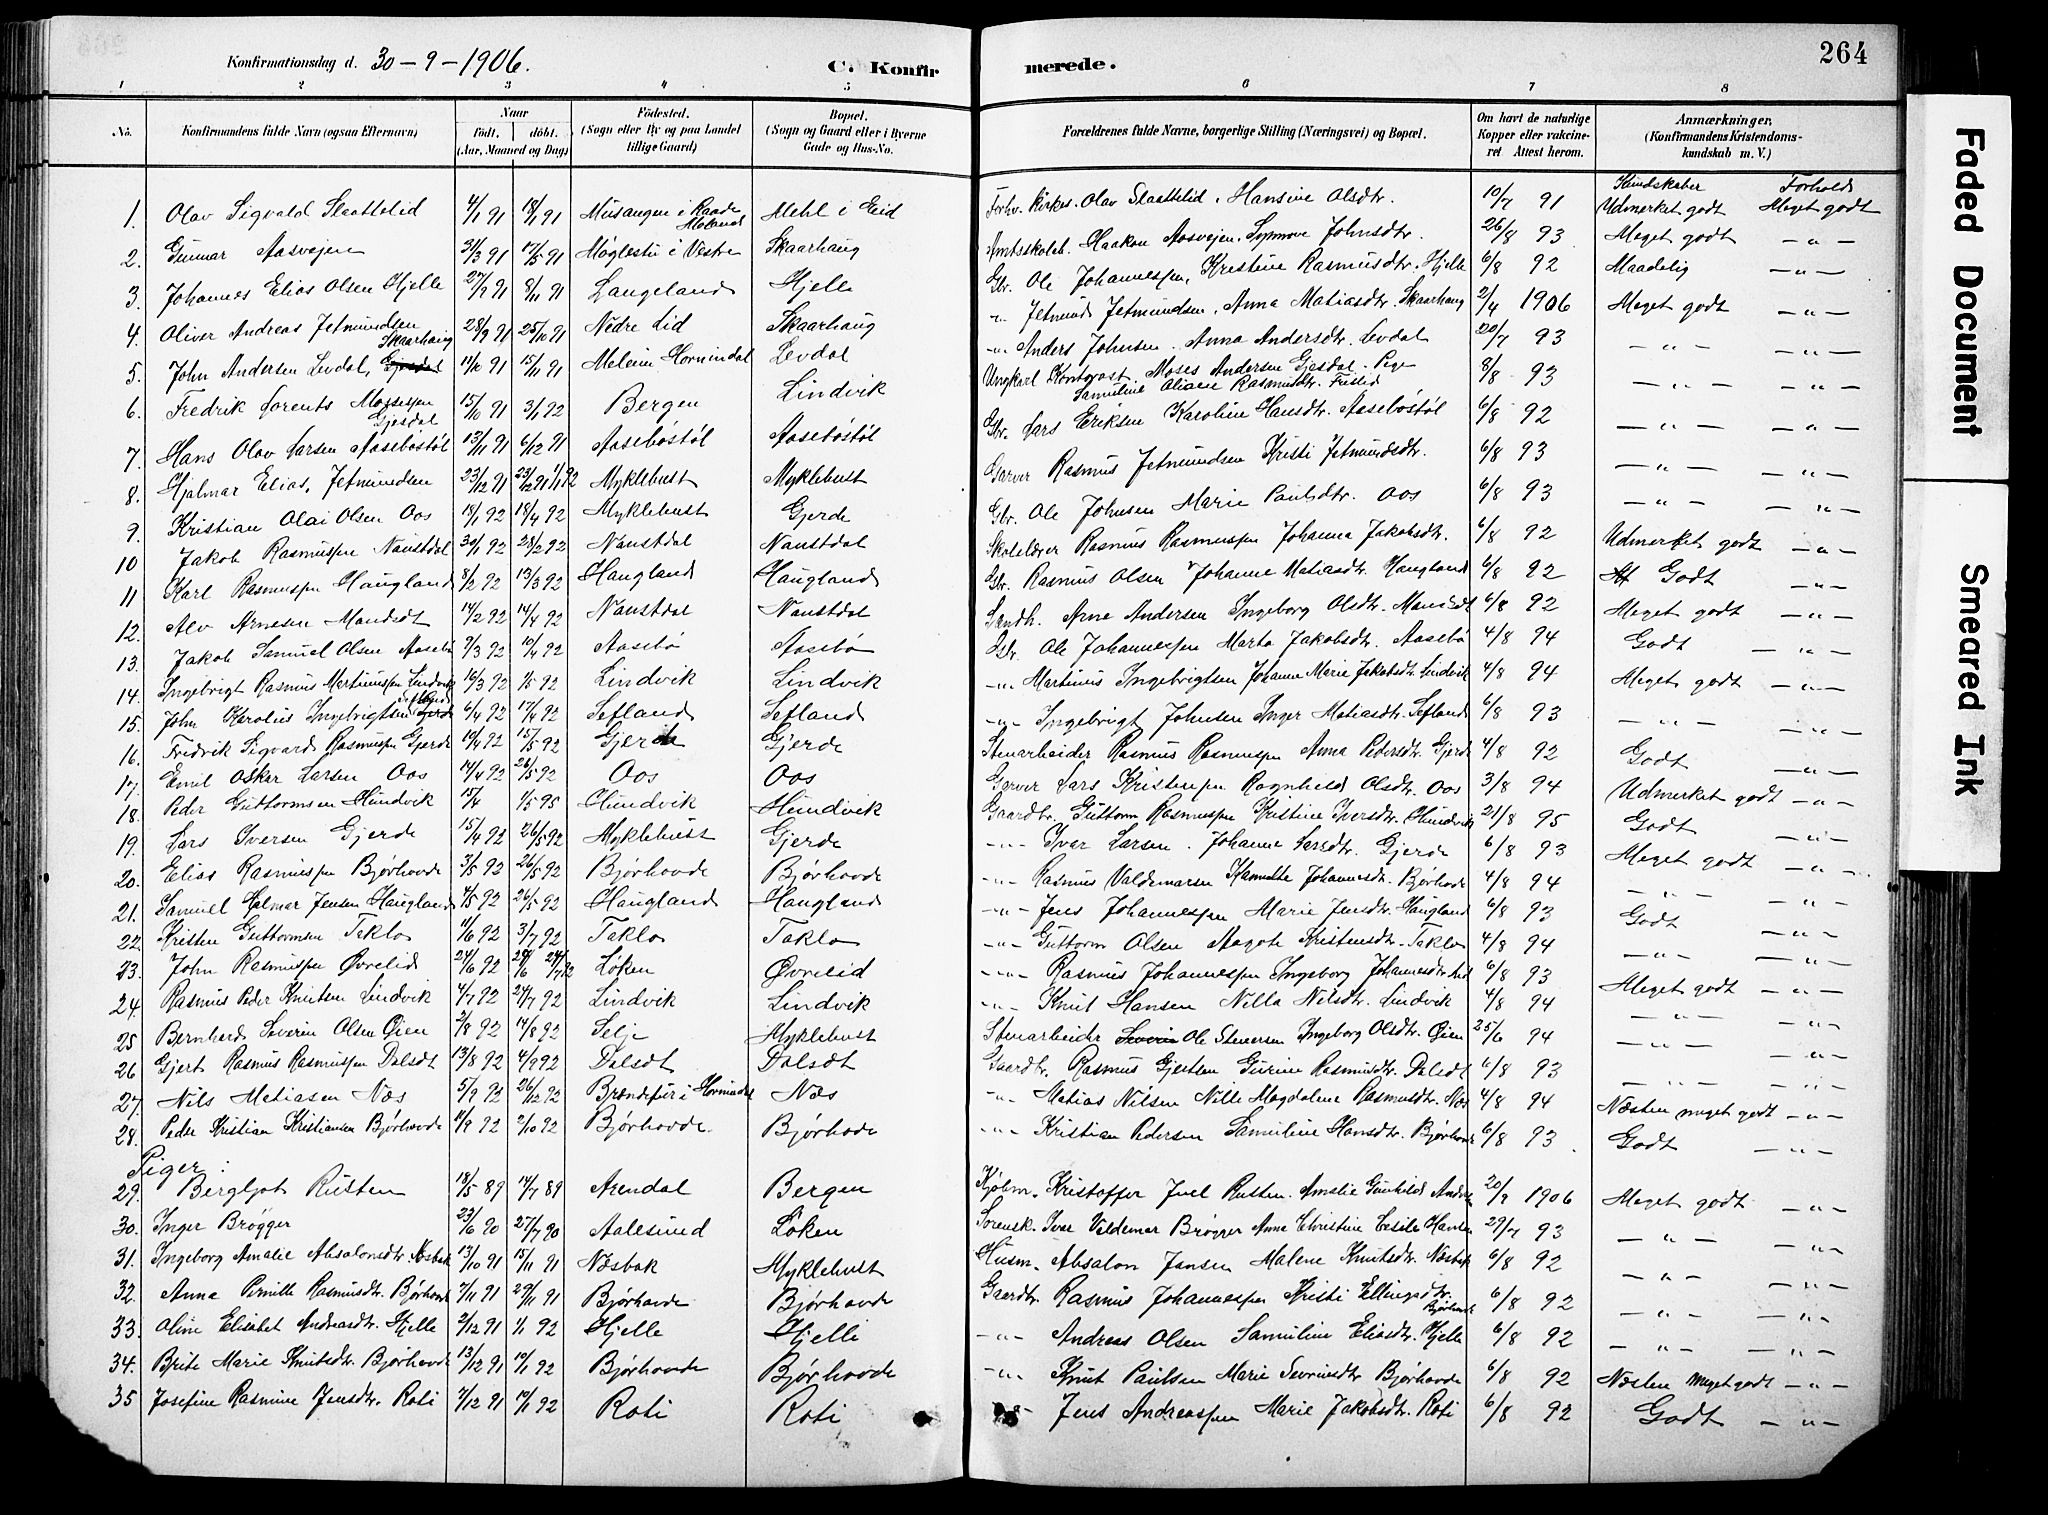 264
Konfirmationsdag d. 30-9-1906.
C. Konfirmerede.
1 2 3 4 5 6 7 8
No. Konfirmandens fulde Navn (ogsaa Efternavn) Naar født, døbt. (Aar, Maaned og Dag) Fødested. (Sogn eller By og paa Landet tillige Gaard) Bopæl. (Sogn og Gaard eller i Byerne Gade og Hus-No. Forældrenes fulde Navne, borgerlige Stilling (Næringsvei) og Bopæl. Om havt de naturlige Kopper eller vakcineret Attest herom. Anmærkninger, (Konfirmandens Kristendomskundskab m. V.)
Kundskaber Forhold
1. Olav Sigvald Slaattelid 4/1 91 18/1 91 Mehl i Eid Olav Slaattelid. Hansine Olsdtr. 10/7 91 Udmerket godt Meget godt
2. Gunnar Aasvejen 31/3 91 17/5 91 Møglestu i Vestre Skaarhaug Amtsskoleb. Haakon Aasvejen. Synnove Johnsdtr. 26/8 93 Meget godt -"-
3. Johannes Elias Olsen Hjelle 27/9 91 8/11 91 Langeland Hjelle Gbr. Ole Johannessen, Kristine Rasmusdtr. Hjelle 6/8 92 Maadelig -"-
4. Oliver Andreas Jetmundsen Skaarhaug 28/9 91 25/10 91 Nedre Lid Skaarhaug -"- Jetmund Jetmundsen. Anna Matiasdtr. Skaarhaug 2/4 1906 Meget godt -"-
5. John Andersen Levdal 11/10 91 15/11 91 Hornindal Levdal -"- Anders Johnsen. Anna Andersdtr. Levdal 20/7 93 -"- -"-
6. Fredrik Lorents Mosessen Gjesdal 15/10 91 3/1 92 Bergen Lindvik Ungkarl Moses Andersen Gjesdal. Pige Samuline Oliane Rasmusdtr. 8/8 93 -"- -"-
7. Hans Olav Larsen Aasebøstøl 13/11 91 6/12 91 Aasebøstøl Aasebøstøl Gbr. Lars Eriksen Karoline Hansdtr. Aasebøstøl 6/8 92 -"- -"-
8. Hjalmar Elias Jetmundsen 23/12 91 23/12 91 1/1 92 Myklebust Myklebust Garver Rasmus Jetmundsen Kristi Jetmundsdtr. 6/8 93 -"- -"-
9. Kristian Olai Olsen Oos 18/1 92 18/4 92 Myklebust Gjerde Gbr. Ole Johnsen Marie Paulsdtr. Oos 6/8 93 -"- -"-
10 Jakob Rasmussen Naustdal 30/1 92 28/2 92 Naustdal Naustdal Skolelærer Rasmus Rasmussen Johanna Jakobsdtr. 6/8 92 Udmerket godt -"-
11 Karl Rasmussen Haugland 8/2 92 13/3 92 Haugland Haugland Gbr. Rasmus Olsen Johanne Matiasdtr. Haugland 6/8 92 Godt -"-
12. Alv Arnesen 14/2 92 14/4 92 Naustdal Naustdal Landh. Arne Andersen Ingeborg Olsdtr. 6/8 92 Meget godt -"-
13. Jakob Samuel Olsen Aasebø 7/3 92 10/4 92 Aasebø Aasebø Gbr. Ole Johannessen Marta Jakobsdtr. Aasebø 4/8 94 Godt -"-
14. Ingebrigt Rasmus Martinussen Lindvik 16/3 92 1/5 92 Lindvik Lindvik -"- Martinus Ingebrigtsen Johanne Marie Jakobsdtr. Lindvik 4/8 94 Meget godt -"-
15. John Karolius Ingebrigtsen Sefland 6/4 92 17/4 92 Sefland Sefland -"- Ingebrigt Johnsen Inger Matiasdtr. Sefland 6/8 93 -"- -"-
16. Fredrik Sigvard Rasmussen Gjerde 10/4 92 15/5 92 Gjerde Gjerde Stenarbeider Rasmus Rasmussen Anna Pedersdtr. Gjerde 4/8 92 Godt -"-
17. Emil Oskar Larsen Oos 14/4 92 26/5 92 Oos Oos Garver Lars Kristensen Ragnhild Olsdtr. Oos 3/8 94 Udmerket godt -"-
18. Peder Guttormsen Hundvik 15/4 1/5 95 Hundvik Hundvik Gaardbr. Guttorm Rasmussen Kristine Iversdtr. Hundvik 21/8 95 Godt -"-
19. Lars Iversen Gjerde 15/4 92 26/5 92 Myklebust Gjerde -"- Ivar Larsen. Johanne Larsdtr. Gjerde 6/8 93 Meget godt -"-
20. Elias Rasmussen Bjørhovde 3/5 92 26/5 92 Bjørhovde Bjørhovde -"- Rasmus Valdemarsen Johannesdtr. Bjørhovde 4/8 94 -"- -"-
21. Samuel Hjelmar Jensen Haugland 4/5 92 26/5 92 Haugland Haugland -"- Jens Johannessen Marie Jensdtr. Haugland 6/8 93 Godt -"-
22. Kristen Guttormsen Taklo 11/6 92 3/7 92 Taklo Taklo -"- Guttorm Olsen Magote Kristensdtr. Taklo 4/8 94 -"- -"-
23. John Rasmussen Øvrelid 24/6 92 24/7 92 Løken Øvrelid -"- Rasmus Johannessen Ingeborg Johannesdtr. 6/8 93 Meget godt -"-
24. Rasmus Peder Knutsen Lindvik 4/7 92 24/7 92 Lindvik Lindvik -"- Knut Hansen Nilla Nilsdtr. Lindvik 4/8 94 -"- -"-
25 Bernhard Severin Olsen Øien 2/8 92 14/8 92 Selje Myklebust Stenarbeider Ole Stenersen Ingeborg Olsdtr. Øien 25/6 94 -"- -"-
26 Gjert Rasmus Rasmussen Dalsdt 13/8 92 4/9 92 Dalsdt Dalsdt Gaardbr. Rasmus Gjertsen Gurine Rasmusdtr. Dalsdt 6/8 93 -"- -"-
27. Nils Matiasen Næs 5/9 92 26/12 92 i Hornindal Næs -"- Matias Nilsen Nille Magdalene Rasmusdtr. Næs 4/8 94 Næsten meget godt -"-
28. Peder Kristian Kristiansen Bjørhovde 11/9 92 2/10 92 Bjørhovde Bjørhovde -"- Kristian Pedersen Samuline Hansdtr. Bjørhovde 6/8 93 Godt -"-
Piger:
29. Bergljot Rusten 18/5 89 14/7 89 Arendal Bergen Kjøbm. Kristoffer Juel Rusten. Amalie Gunhild 20/9 1906 Meget godt -"-
30. Inger Brøgger 23/6 90 27/7 90 Aalesund Løken Sorensk. Ivar Valdemar Brøgger Anna Christine Cecilie Hansen 29/7 93 -"- -"-
31. Ingeborg Amalie Absalonsdtr. Næsbak 13/10 91 15/11 91 Næsbak Myklebust Husm. Absalon Jensen Malene Knutsdtr. Næsbak 6/8 92 -"- -"-
32. Anna Pernille Rasmusdtr. Bjørhovde 7/11 91 29/11 91 Bjørhovde Bjørhovde Gaardbr. Rasmus Johannessen Kristi Ellingsdtr. Bjørhovde 6/8 92 -"- -"-
33. Oline Elisabet Andreasdtr. Hjelle 2/12 91 1/1 92 Hjelle Hjelle -"- Andreas Olsen Samuline Eliasdtr. Hjelle 6/8 92 -"- -"-
34. Brite Marie Knutsdtr. Bjørhovde 13/12 91 10/1 92 Bjørhovde Bjørhovde -"- Knut Paulsen Marie Sevrinsdtr. Bjørhovde 6/8 92 Næsten meget godt -"-
35 Josefine Rasmine Jensdtr. Roti 7/12 91 10/1 92 Roti Roti -"- Jens Andreassen Marie Jakobsdtr. Roti 6/8 92 Godt -"-
Faded Document
Smeared Ink